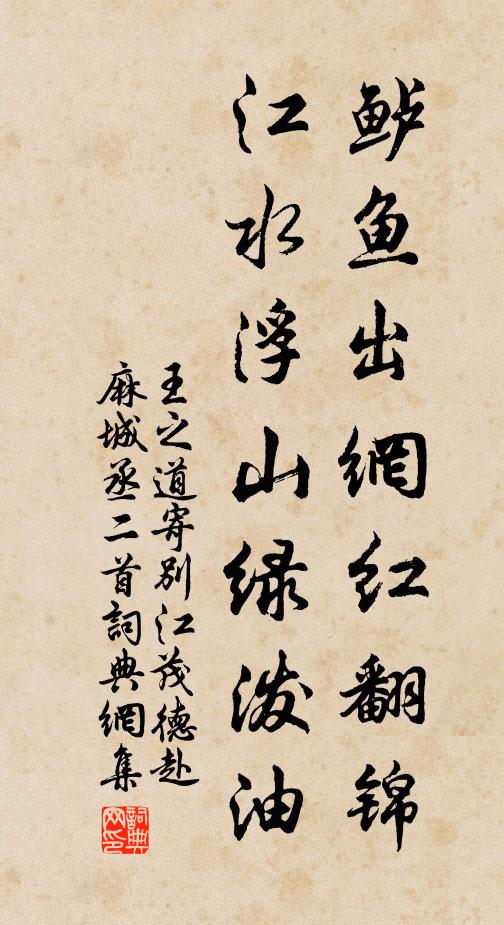 鲈鱼出網红翻锦
江水浮山绿泼油
王之道寄别江茂德赴
麻城丞二首詞典網集
詞典网印